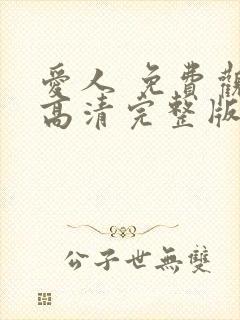 愛人 免費觀
高清完整版
公子世無雙